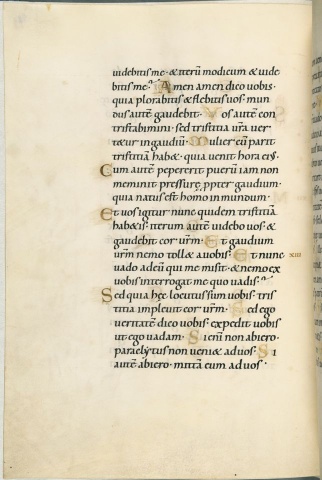 uidebitis me · & iterū modicum & uide
bitis me · Amen amen dico uobis ·
quia plorabitis & flebitis uos · mun
dus autē gaudebit · Vos autē con
tristabimini · sed tristitia ur̄a ver
t&ur in gaudiū · Mulier cū parit
tristitiā hab& · quia uenit hora eiꝰ ·
Cum autē pepererit puerū iam non
meminit pressurę ꝓpter gaudium ·
quia natus est homo in mundum ·
Et uos igitur nunc quidem tristitiā
hab&is · iterum autē uidebo uos · &
gaudebit cor ur̄m · Et gaudium
ur̄m nemo toll& a uobis · Et nunc xiii
uado ad eū qui me misit · & nemo ex
uobis interrogat me quo uadis ·
Sed quia hęc locutus sum uobis · tris
titia impleuit cor ur̄m · Sed ego
ueritatē dico uobis · expedit uobis
ut ego uadam · Si enī non abiero ·
paraclytus non ueni& ad uos · Si
autē abiero · mittā eum ad uos ·